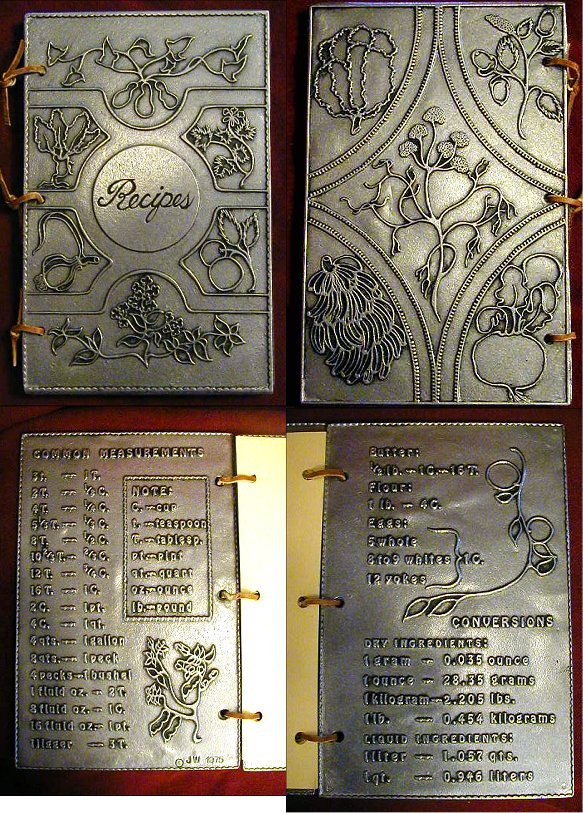 Recipes
COMMON MEASUREMENTS
3t. — 1T.
2T. — ⅛C.
4T. — ¼C.
5⅓T. — ⅓C.
8T. — ½C.
10⅔T. — ⅔C.
12T. — ¾C.
16T. — 1C.
2C. — 1pt.
4C. — 1qt.
4qts. — 1gallon
8qts. — 1peck
4pecks — 1bushel
1fluid oz. — 2T.
8fluid oz. — 1C.
16fluid oz. — 1pt.
1jigger — 3T.
NOTE:
C. — cup
t. — teaspoon
T. — tablesp.
pt. — pint
qt. — quart
oz. — ounce
lb. — pound
© JW 1975
Butter:
½lb. — 1C. — 16T.
Flour:
1 lb. — 4C.
Eggs:
5 whole
8 to 9 whites 1C.
12 yokes
CONVERSIONS
DRY INGREDIENTS:
1 gram — 0.035 ounce
1 ounce — 28.35 grams
1 kilogram — 2.205 lbs.
1 lb. — 0.454 kilograms
LIQUID INGREDIENTS:
1 liter — 1.057 qts.
1 qt. — 0.946 liters